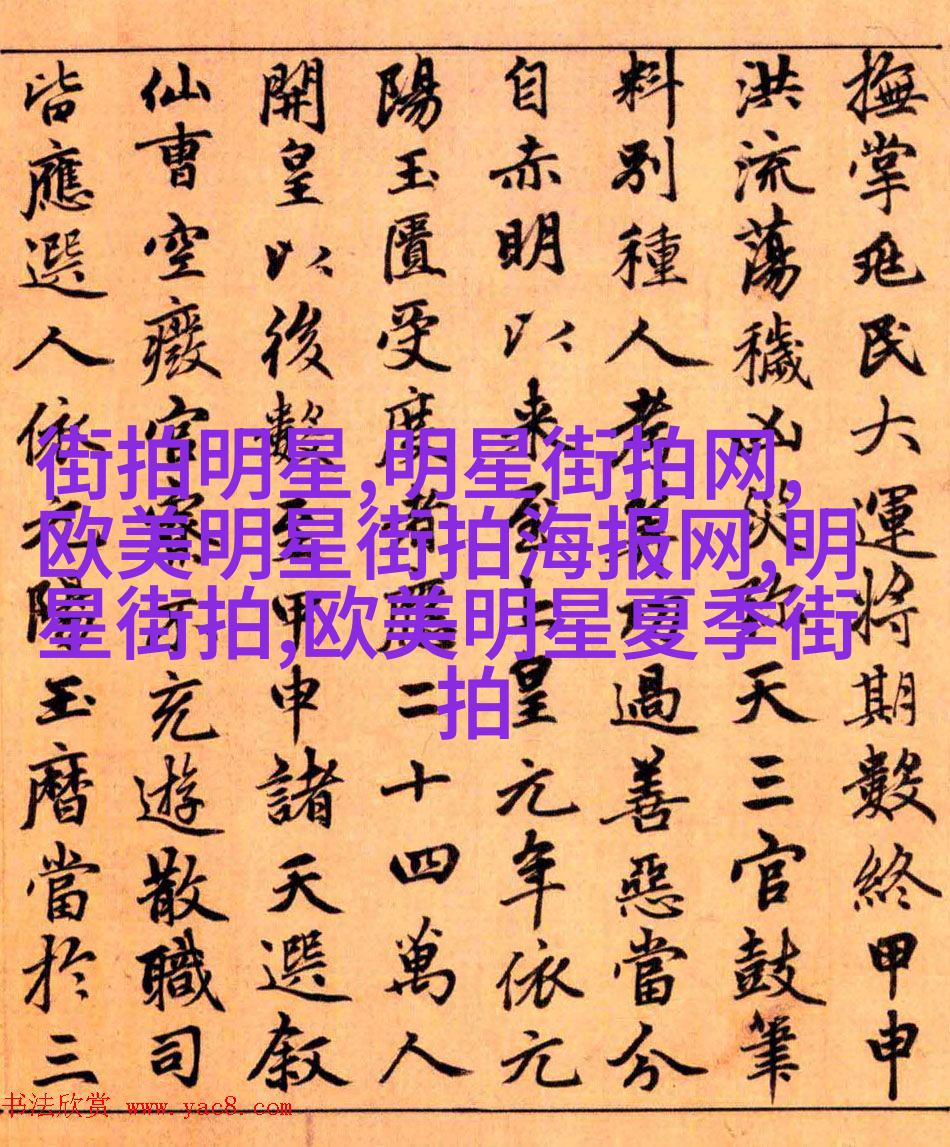 撫掌兆民大運將期數終甲申
洪流蕩穢凶災彌天三官鼓筆
料別種人考筭功過善惡當分
自赤明以來至上皇元年依元
陽玉匱受度者應二十四萬人
開皇以後數至甲申諸天選叙
仙曹空廢官充遊散職司
皆應選人依元陽玉曆當於三
街拍明星,明星街拍网,
欧美明星街拍海报网,明
星街拍,欧美明星夏季街
拍
书法欣赏 www.yac8.com